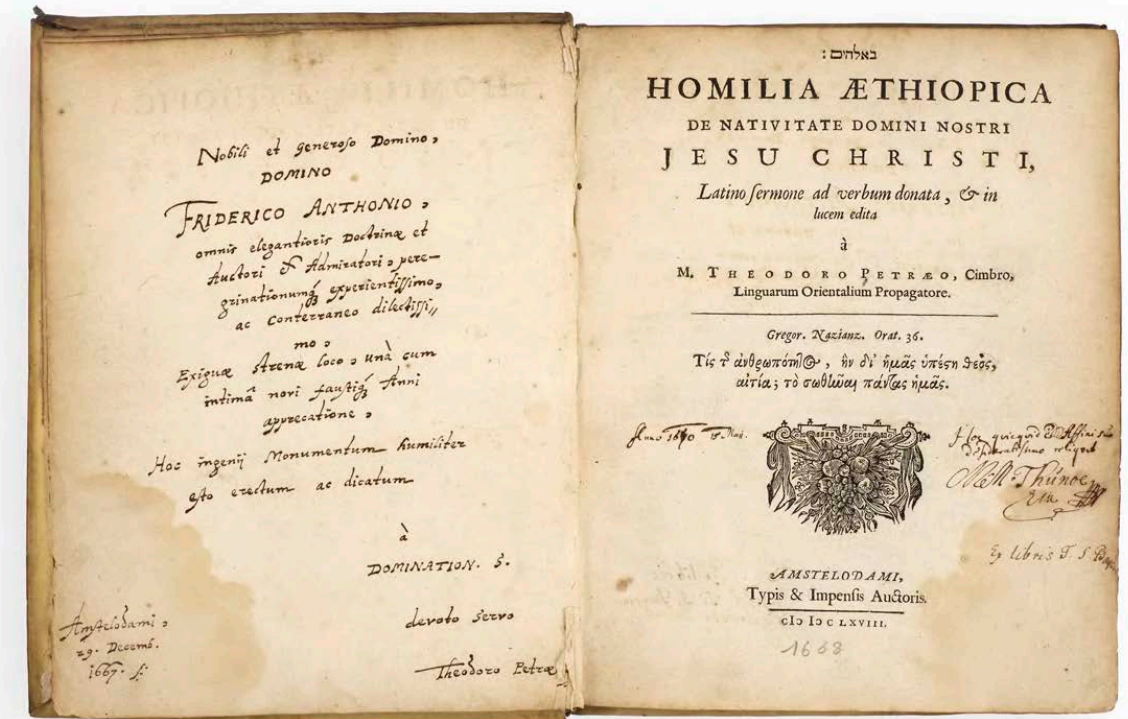 Nobili et generoso Domino,
DOMINO
FRIDERICO ANTHONIO,
omnis elegantioris Doctrinæ et
Auctori & Admiratori, pere-
grinationumq́ experientissimo,
ac Conterraneo dilectissi„
mo,
Exiguæ strenæ loco, unà cum
intimâ novi faustiq́ Anni
apprecatione,
Hoc ingenij Monumentum humiliter
esto erectum ac dicatum
à
DOMINATION. S.
devoto servo
Theodoro Petræ
Amstelodami,
29. Decemb.
1667. S:
באלהים :
HOMILIA ÆTHIOPICA
DE NATIVITATE DOMINI NOSTRI
JESU CHRISTI,
Latino sermone ad verbum donata, & in
lucem edita
à
M. THEODORO PETRÆO, Cimbro,
Linguarum Orientalium Propagatore.
Gregor. Nazianz. Orat. 36.
Τίς τ̃ ἀνθρωπότηϐ, ἣν δι' ἡμᾶς ὑπέςη θεὸς,
αἰτία; τὸ σωθῆναι πάντας ἡμᾶς.
Anno 1670 Maj.
Hoc quicquid Affini
reliquit
Thünoe
Ex libris T. S.
AMSTELODAMI,
Typis & Impensis Auctoris.
cIɔ Iɔ C LXVIII.
1668